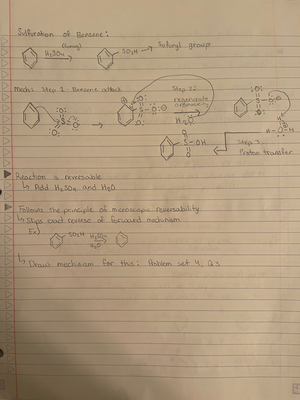 Sulfuration of Benzene:
(fuming)
H₂SO₄
SO₃H → Sulfuryl group
Mech: Step 1: Benzene attack
Step 2: regenerate aromaticity
H₂O
SOH
Step 3: Proton transfer
Reaction is reversable
↳ Add H₂SO₄ and H₂O
Follows the principle of microscopic reversability
↳ Steps exact reverse of forward mechanism
Ex)
SO₃H H₂SO₄
H₂O
↳ Draw mechanism for this: Problem set 4, Q3